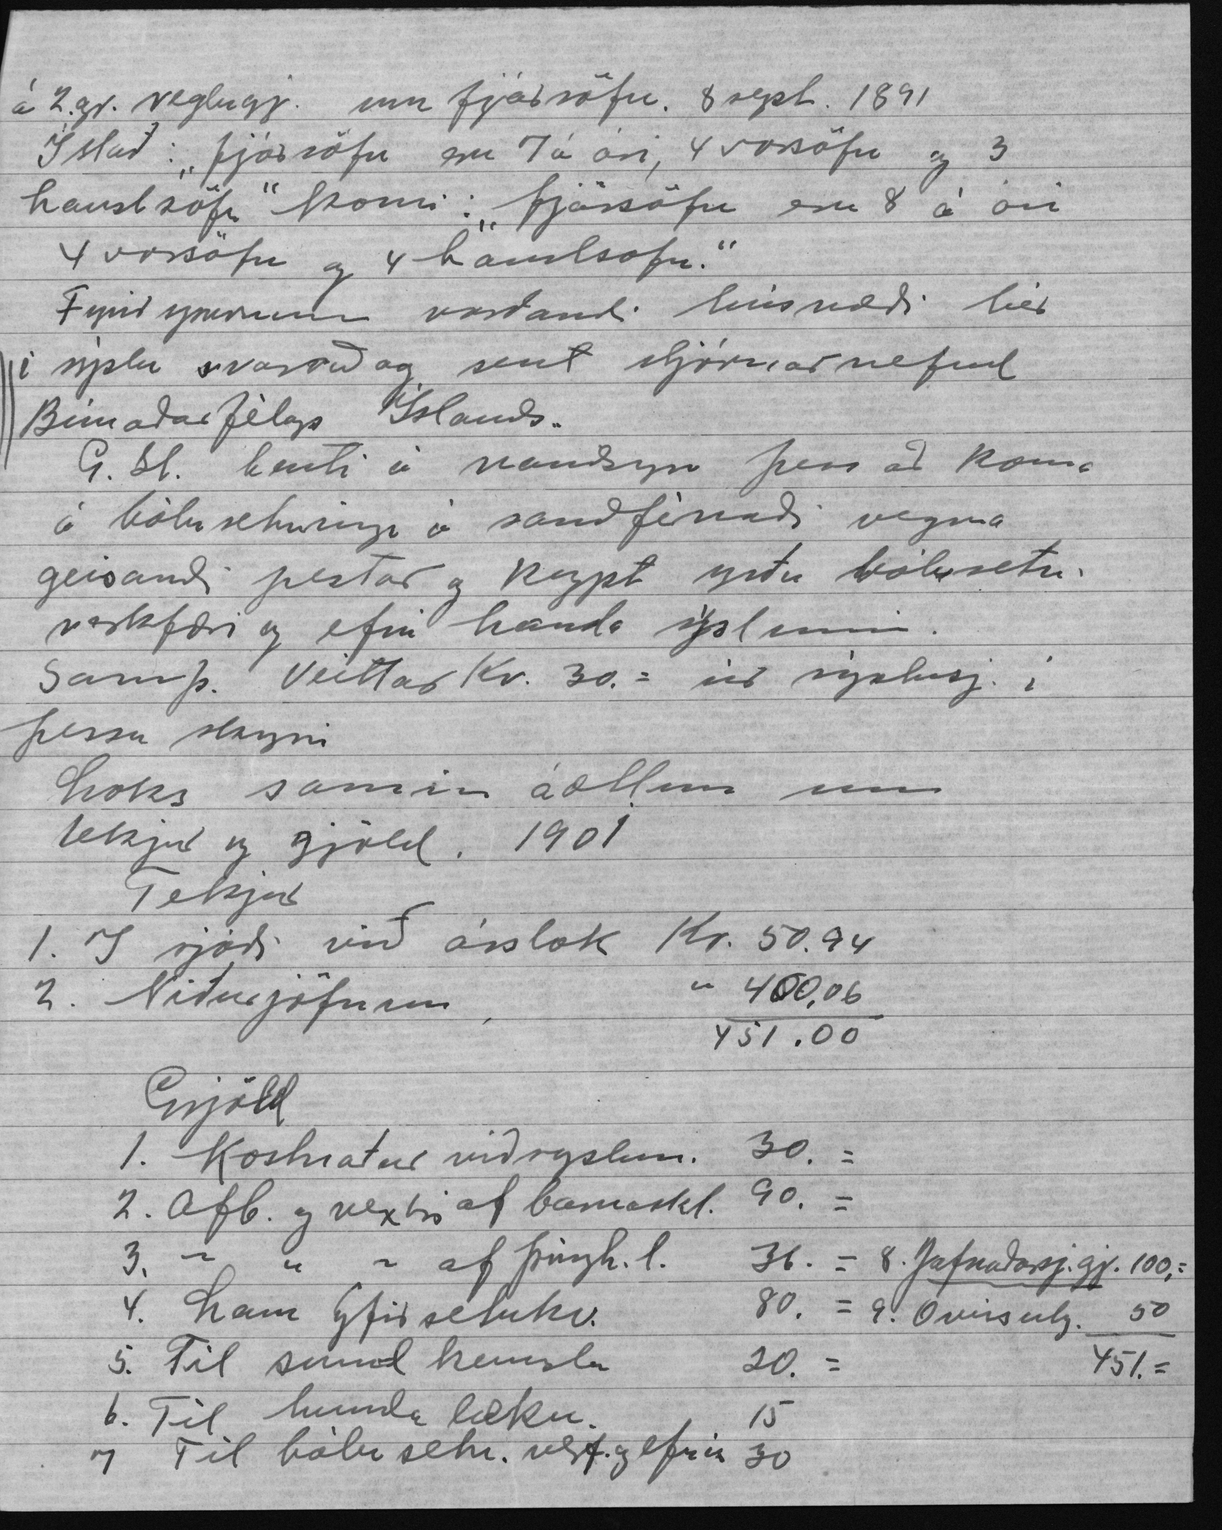 á 2.gr. reglugj. um fjársöfn. 8 sept. 1891
Í stað: „fjársöfn eru 7 á ári, 4 vorsöfn og 3
haustsöfn“ komi: „fjársöfn eru 8 á ári
4 vorsöfn og 4 haustsöfn.“
Fyrirspurnum varðandi húsnæði hér
í sýslu svarað og sent stjórnarnefnd
Búnaðarfélags Íslands.
G. Sl. benti á nauðsyn þess að koma
á bólusetningu á sauðfénaði vegna
geisandi pestar og keypt yrðu bólusetn.
verkfæri og efni handa sýslunni.
Samþ. Veittar Kr. 30.= úr sýslusj. í
þessu skyni
Loks samin áætlun um
tekjur og gjöld. 1901
Tekjur
1. Í sjóði við árslok Kr. 50.94
2. Niðurjöfnun „ 400,06
451.00
Gjöld
1. Kostnaður við sýslun. 30. =
2. Afb. og vextir af barnaskl. 90. =
3. " " " af þingh. l. 36. = 8. Jafnaðarsj.gj. 100,=
4. Laun yfirsetukv. 80. = 9. Óviss útg. 50
5. Til sund kenslu 20. = 451.=
6. Til hunda lækn. 15
7 Til bólu setn. verkf. og efnis 30